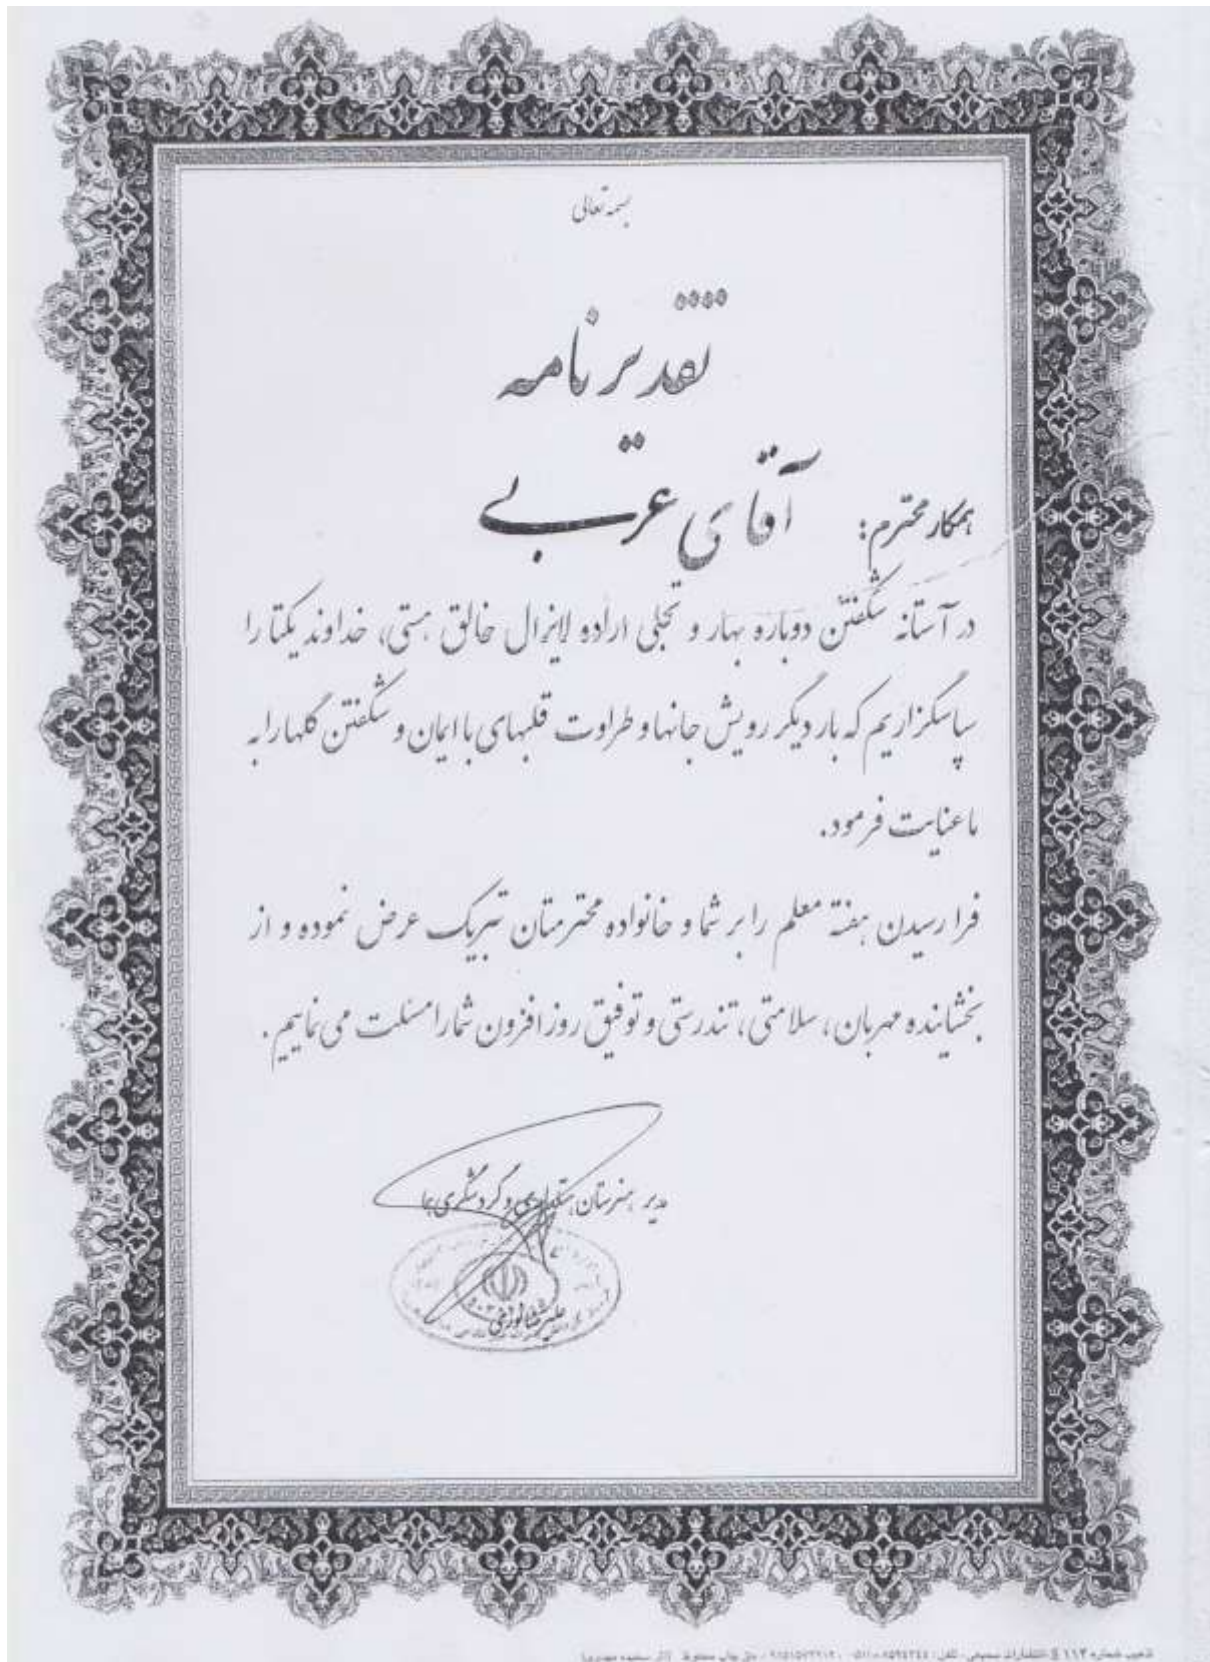 بسمه تعالی
تقدیرنامه
همکار محترم: آقای عربی
در آستانه شکفتن دوباره بهار و تجلی اراده لایزال خالق هستی، خداوند یکتا را
سپاسگزاریم که بار دیگر رویش جانها و طراوت قلبهای با ایمان و شکفتن گلها را به
ما عنایت فرمود.
فرا رسیدن هفته معلم را بر شما و خانواده محترمتان تبریک عرض نموده و از
بخشاینده مهربان، سلامتی، تندرستی و توفیق روز افزون شما را مسئلت می نماییم.
مدیر هنرستان هتلداری و گردشگری